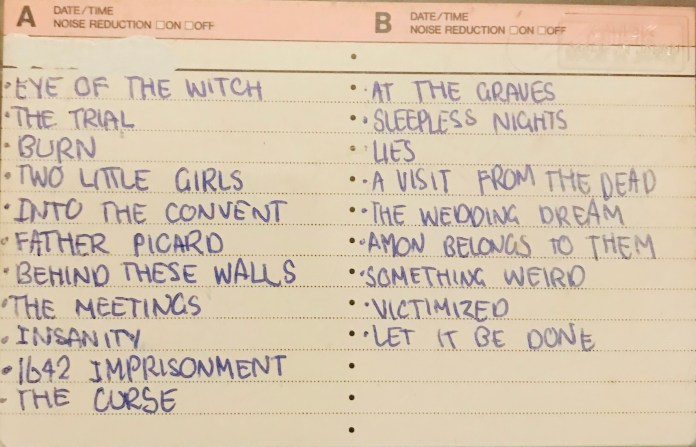 A DATE/TIME
NOISE REDUCTION □ON □OFF
• EYE OF THE WITCH
• THE TRIAL
• BURN
• TWO LITTLE GIRLS
• INTO THE CONVENT
• FATHER PICARD
• BEHIND THESE WALLS
• THE MEETINGS
• INSANITY
• 1642 IMPRISONMENT
• THE CURSE
B DATE/TIME
NOISE REDUCTION □ON □OFF
• AT THE GRAVES
• SLEEPLESS NIGHTS
• LIES
• A VISIT FROM THE DEAD
• THE WEDDING DREAM
• AMON BELONGS TO THEM
• SOMETHING WEIRD
• VICTIMIZED
• LET IT BE DONE